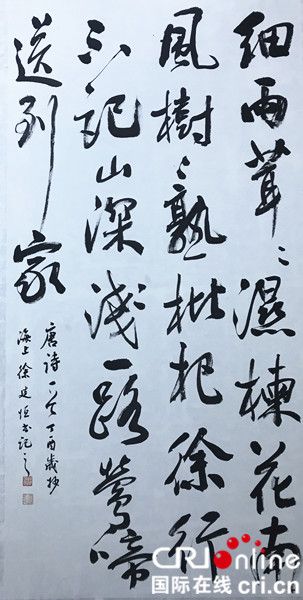 細雨茸〻濕楝花南
風樹〻熟枇杷徐行
不記山深淺一路鶯啼
送到家
唐诗一首丁酉歲抄
海上徐恒书记之
CRI Online
国际在线 cri.cn